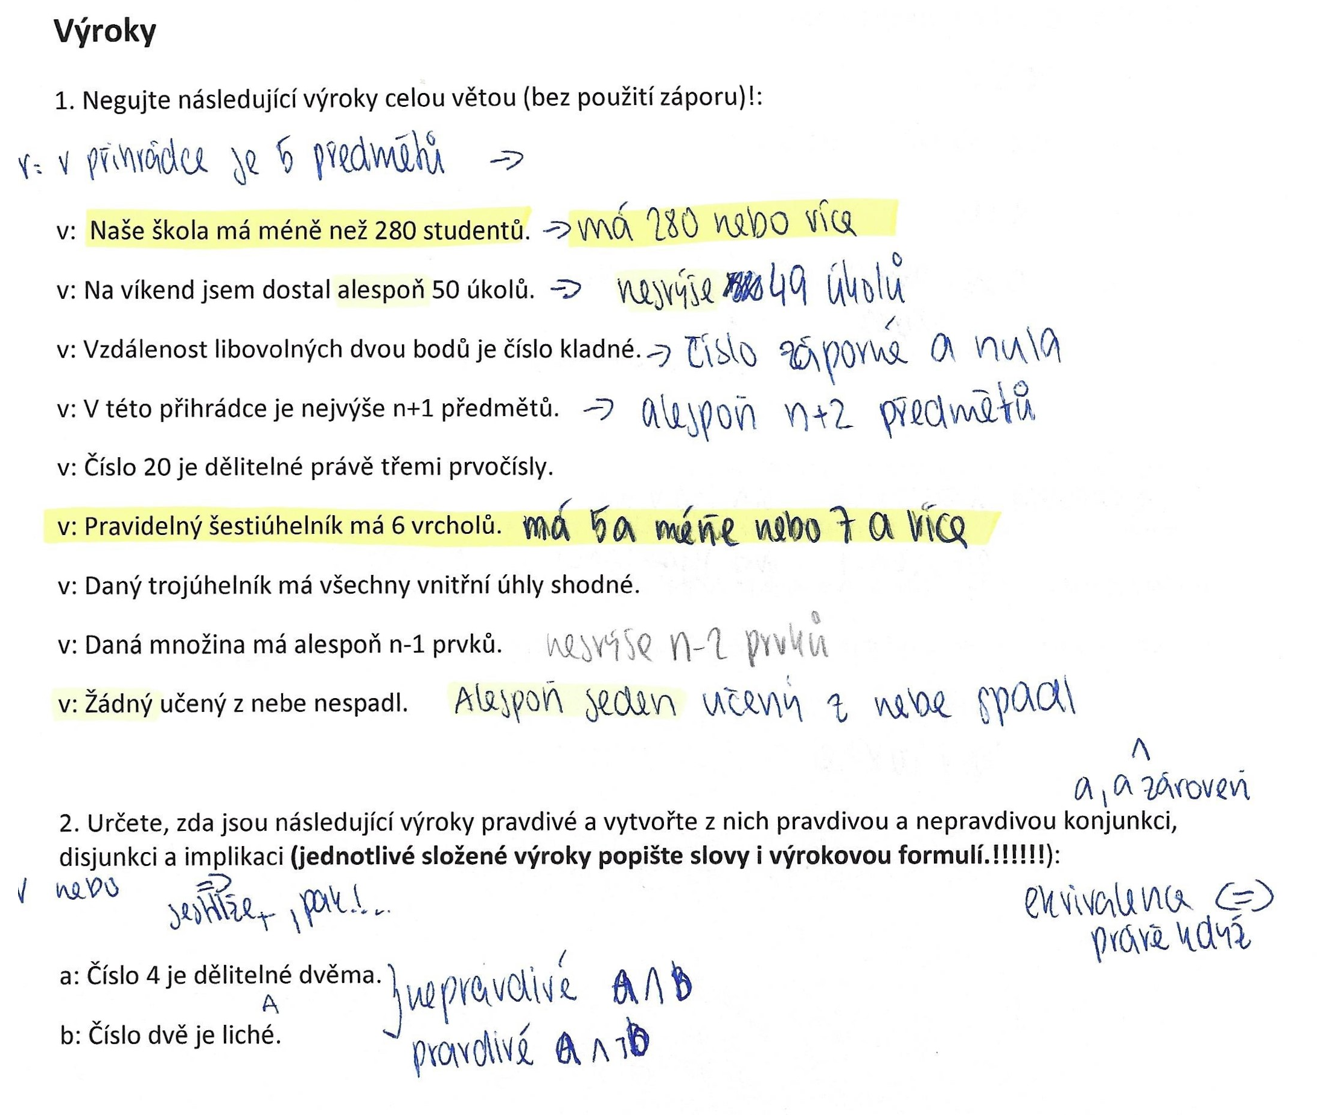 Výroky
1. Negujte následující výroky celou větou (bez použití záporu)!:
v: v přihrádce je 5 předmětů →
v: Naše škola má méně než 280 studentů. → má 280 nebo více
v: Na víkend jsem dostal alespoň 50 úkolů. → nejvýše 49 úkolů
v: Vzdálenost libovolných dvou bodů je číslo kladné. → číslo záporné a nula
v: V této přihrádce je nejvýše n+1 předmětů. → alespoň n+2 předmětů
v: Číslo 20 je dělitelné právě třemi prvočísly.
v: Pravidelný šestiúhelník má 6 vrcholů. má 5 a méně nebo 7 a více
v: Daný trojúhelník má všechny vnitřní úhly shodné.
v: Daná množina má alespoň n-1 prvků. nejvýše n-2 prvků
v: Žádný učený z nebe nespadl. Alespoň jeden učený z nebe spadl
∧
a, a zároveň
2. Určete, zda jsou následující výroky pravdivé a vytvořte z nich pravdivou a nepravdivou konjunkci,
disjunkci a implikaci (jednotlivé složené výroky popište slovy i výrokovou formulí.!!!!!!):
∨ nebo
⇒
jestliže, pak!...
ekvivalence ⇔
právě když
a: Číslo 4 je dělitelné dvěma. } nepravdivé a ∧ b
∧
b: Číslo dvě je liché.
pravdivé a ∧ ¬b